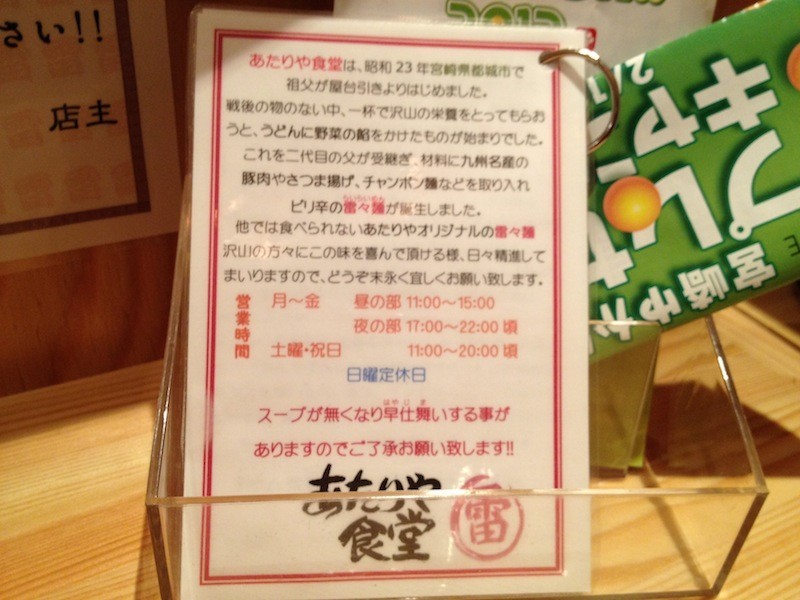 さい!!
店主
2012
あたりや食堂は、昭和23年宮崎県都城市で
祖父が屋台引きよりはじめました。
戦後の物のない中、一杯で沢山の栄養をとってもらお
うと、うどんに野菜の餡をかけたものが始まりでした。
これを二代目の父が受継ぎ、材料に九州名産の
豚肉やさつま揚げ、チャンポン麺などを取り入れ
ピリ辛の雷々麺が誕生しました。
らいらいめん
他では食べられないあたりやオリジナルの雷々麺
沢山の方々にこの味を喜んで頂ける様、日々精進して
まいりますので、どうぞ末永く宜しくお願い致します。
営業時間
月～金 昼の部 11:00～15:00
夜の部 17:00～22:00 頃
土曜・祝日 11:00～20:00 頃
日曜定休日
スープが無くなり早仕舞いする事が
はやじま
ありますのでご了承お願い致します!!
あたりや
食堂
雷
プレゼ
キャン
宮崎市